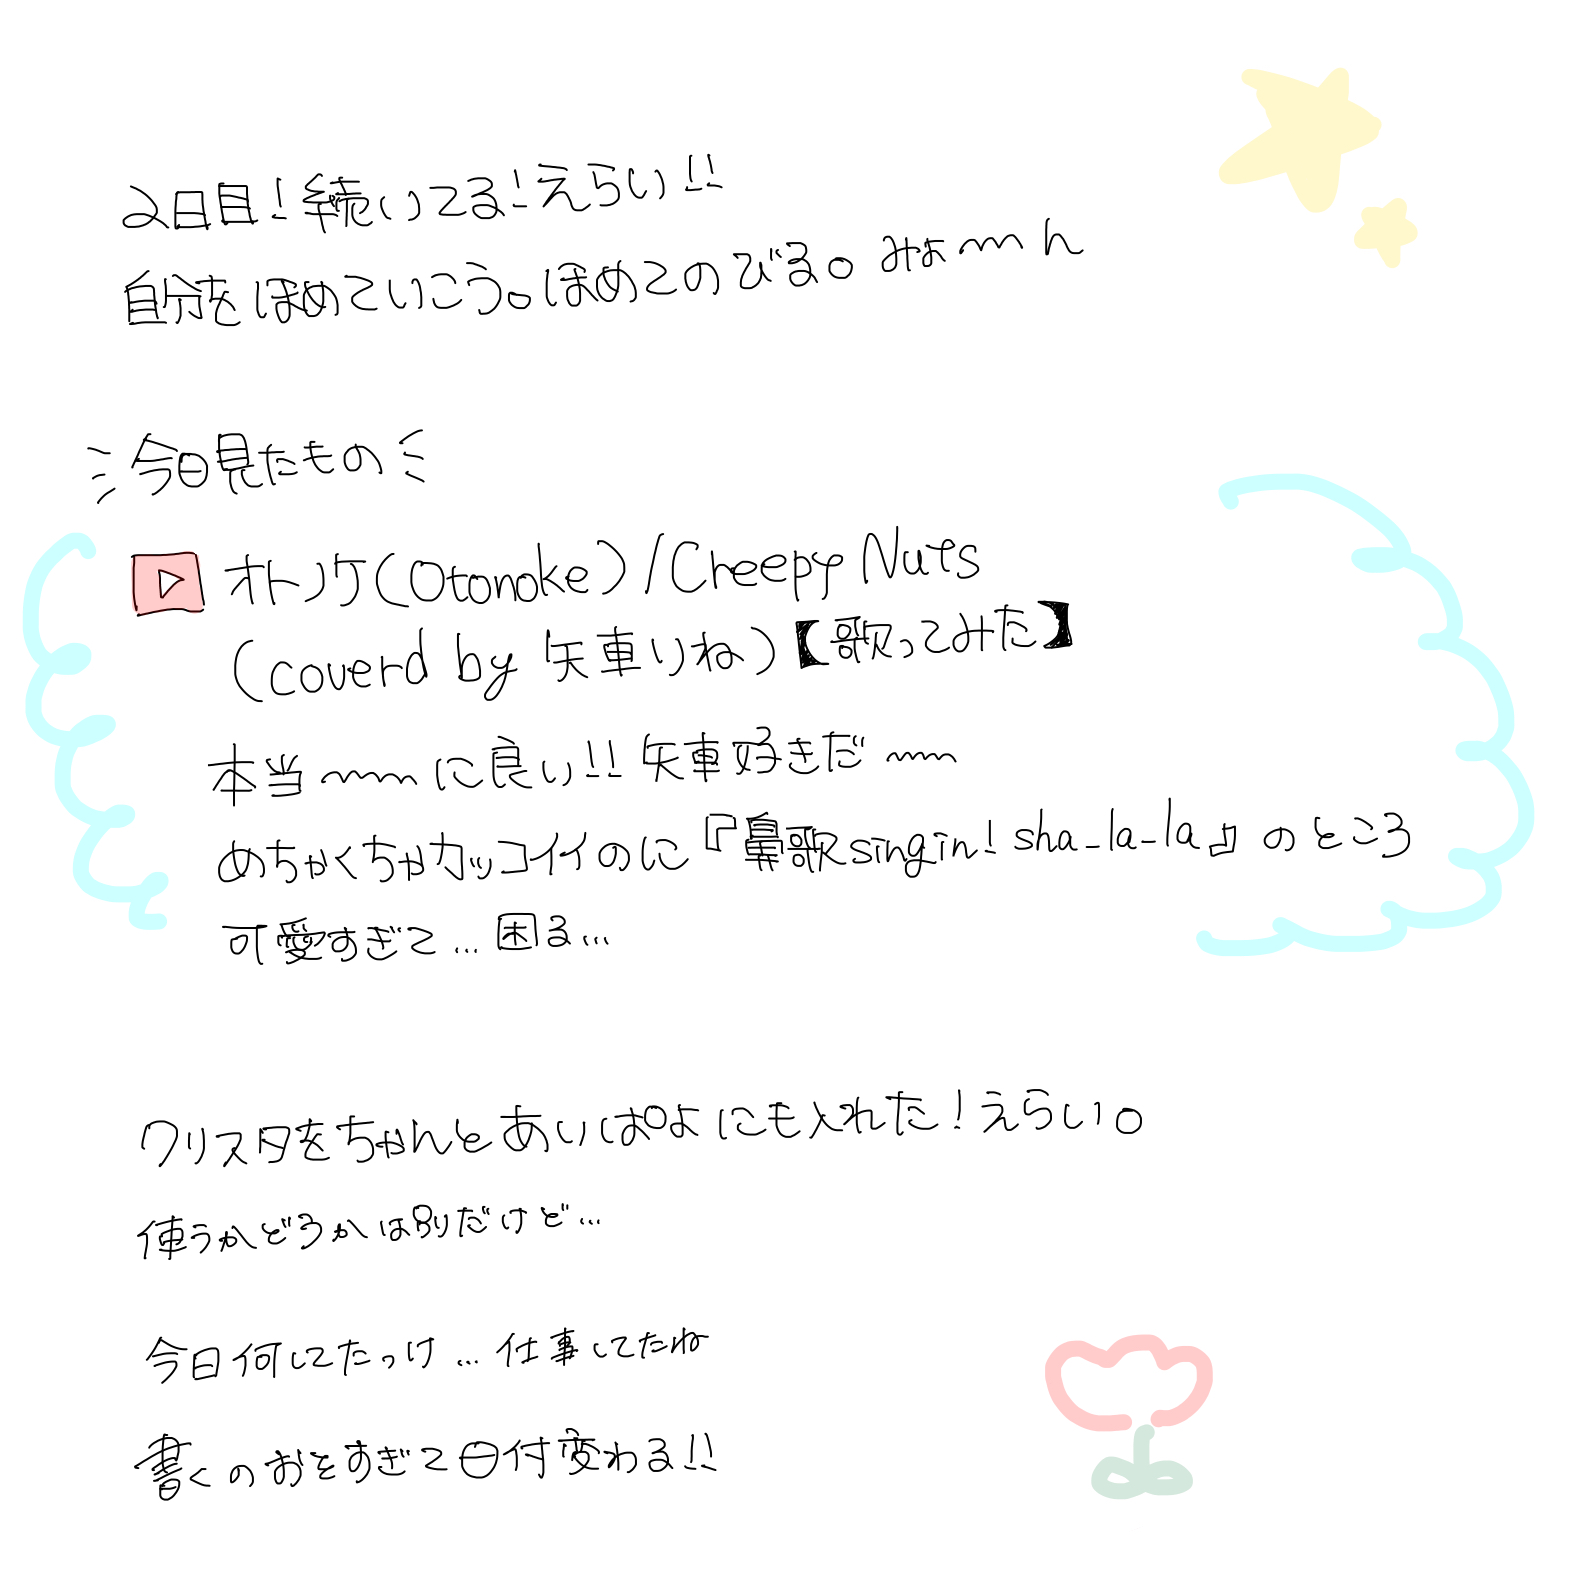 2日目!続いてる!えらい!!
自分をほめていこう。ほめてのびる。みょ〜〜ん
今日見たもの
オトノケ(Otonoke)/Creepy Nuts
(coverd by 矢車りね)【歌ってみた】
本当〜〜〜に良い!!矢車好きだ〜〜〜
めちゃくちゃカッコイイのに『鼻歌singin! sha_la_la』のところ
可愛すぎて…困る…
クリスタをちゃんとあいぱよにも入れた!えらい。
使うかどうかは別だけど…
今日何してたっけ…仕事してたね
書くのおそすぎて日付変わる!!